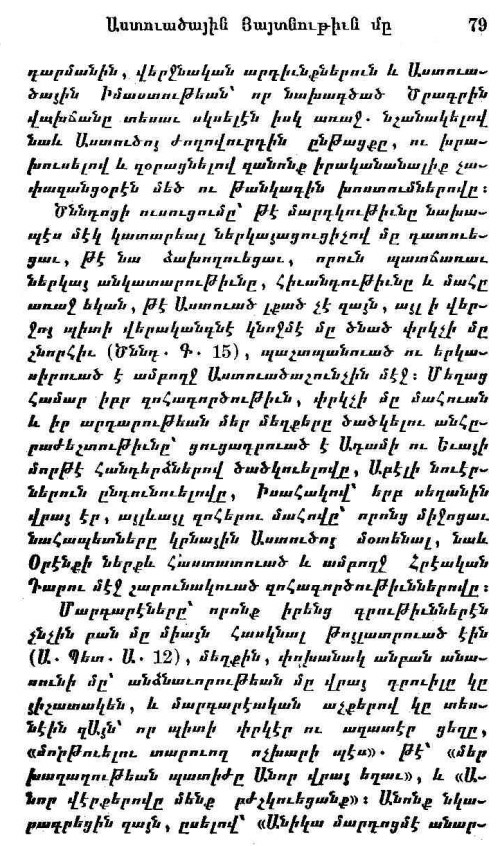 Աստուածային Յայտնութիւն մը 79
դարմանին, վերջնական արդիւնքներուն և Աստուա-
ծային Իմաստութեան՝ որ նախագծած Ծրագրին
վախճանը տեսաւ սկսելէն իսկ առաջ. նշանակելով
նաև Աստուծոյ ժողովուրդին ընթացքը, ու խրա-
խուսելով և զօրացնելով զանոնք իրականանալիք չա-
փազանցօրէն մեծ ու թանկագին խոստումներովը։
Ծննդոցի ուսուցումը՝ թէ մարդկութիւնը նախա-
պէս մէկ կատարեալ ներկայացուցիչով մը դատուե-
ցաւ, թէ նա ձախողուեցաւ, որուն պատճառաւ
ներկայ անկատարութիւնը, հիւանդութիւնը և մահը
առաջ եկան, թէ Աստուած լքած չէ զայն, այլ ի վեր-
ջոյ պիտի վերականգնէ կնոջմէ մը ծնած փրկչի մը
շնորհիւ (Ծննդ. Գ. 15), պաշտպանուած ու երկա-
սիրուած է ամբողջ Աստուածաշունչին մէջ։ Մեղաց
համար իբր զոհագործութիւն, փրկչի մը մահուան
և իր արդարութեան մեր մեղքերը ծածկելու անհը-
րաժեշտութիւնը՝ ցուցադրուած է Ադամի ու Եւայի
մորթէ հանդերձներով ծածկուելովը, Աբէլի նուէր-
ներուն ընդունուելովը, Իսահակով՝ երբ սեղանին
վրայ էր, այլևայլ զոհերու մահովը՝ որոնց միջոցաւ
նահապետները կրնային Աստուծոյ մօտենալ, նաև
Օրէնքի ներքև հաստատուած և ամբողջ Հրէական
Դարու մէջ շարունակուած զոհագործութիւններովը։
Մարդարէները՝ որոնք իրենց գրութիւններէն
չնչին բան մը միայն հասկնալ թոյլատրուած էին
(Ա. Պետ. Ա. 12), մեղքին, փոխանակ անբան անա-
սունի մը՝ անձնաւորութեան մը վրայ դրուիլը կը
յիշատակեն, և մարդարէական աչքերով կը տես-
նէին զԱյն՝ որ պիտի փրկէր ու ազատէր ցեղը,
«մորթուելու տարուող ոչխարի պէս». թէ՝ «մեր
խաղաղութեան պատիժը Անոր վրայ եղաւ», և «Ա-
նոր վէրքերովը մենք բժշկուեցանք»։ Անոնք նկա-
րագրեցին զայն, ըսելով՝ «Անիկա մարդոցմէ անար-